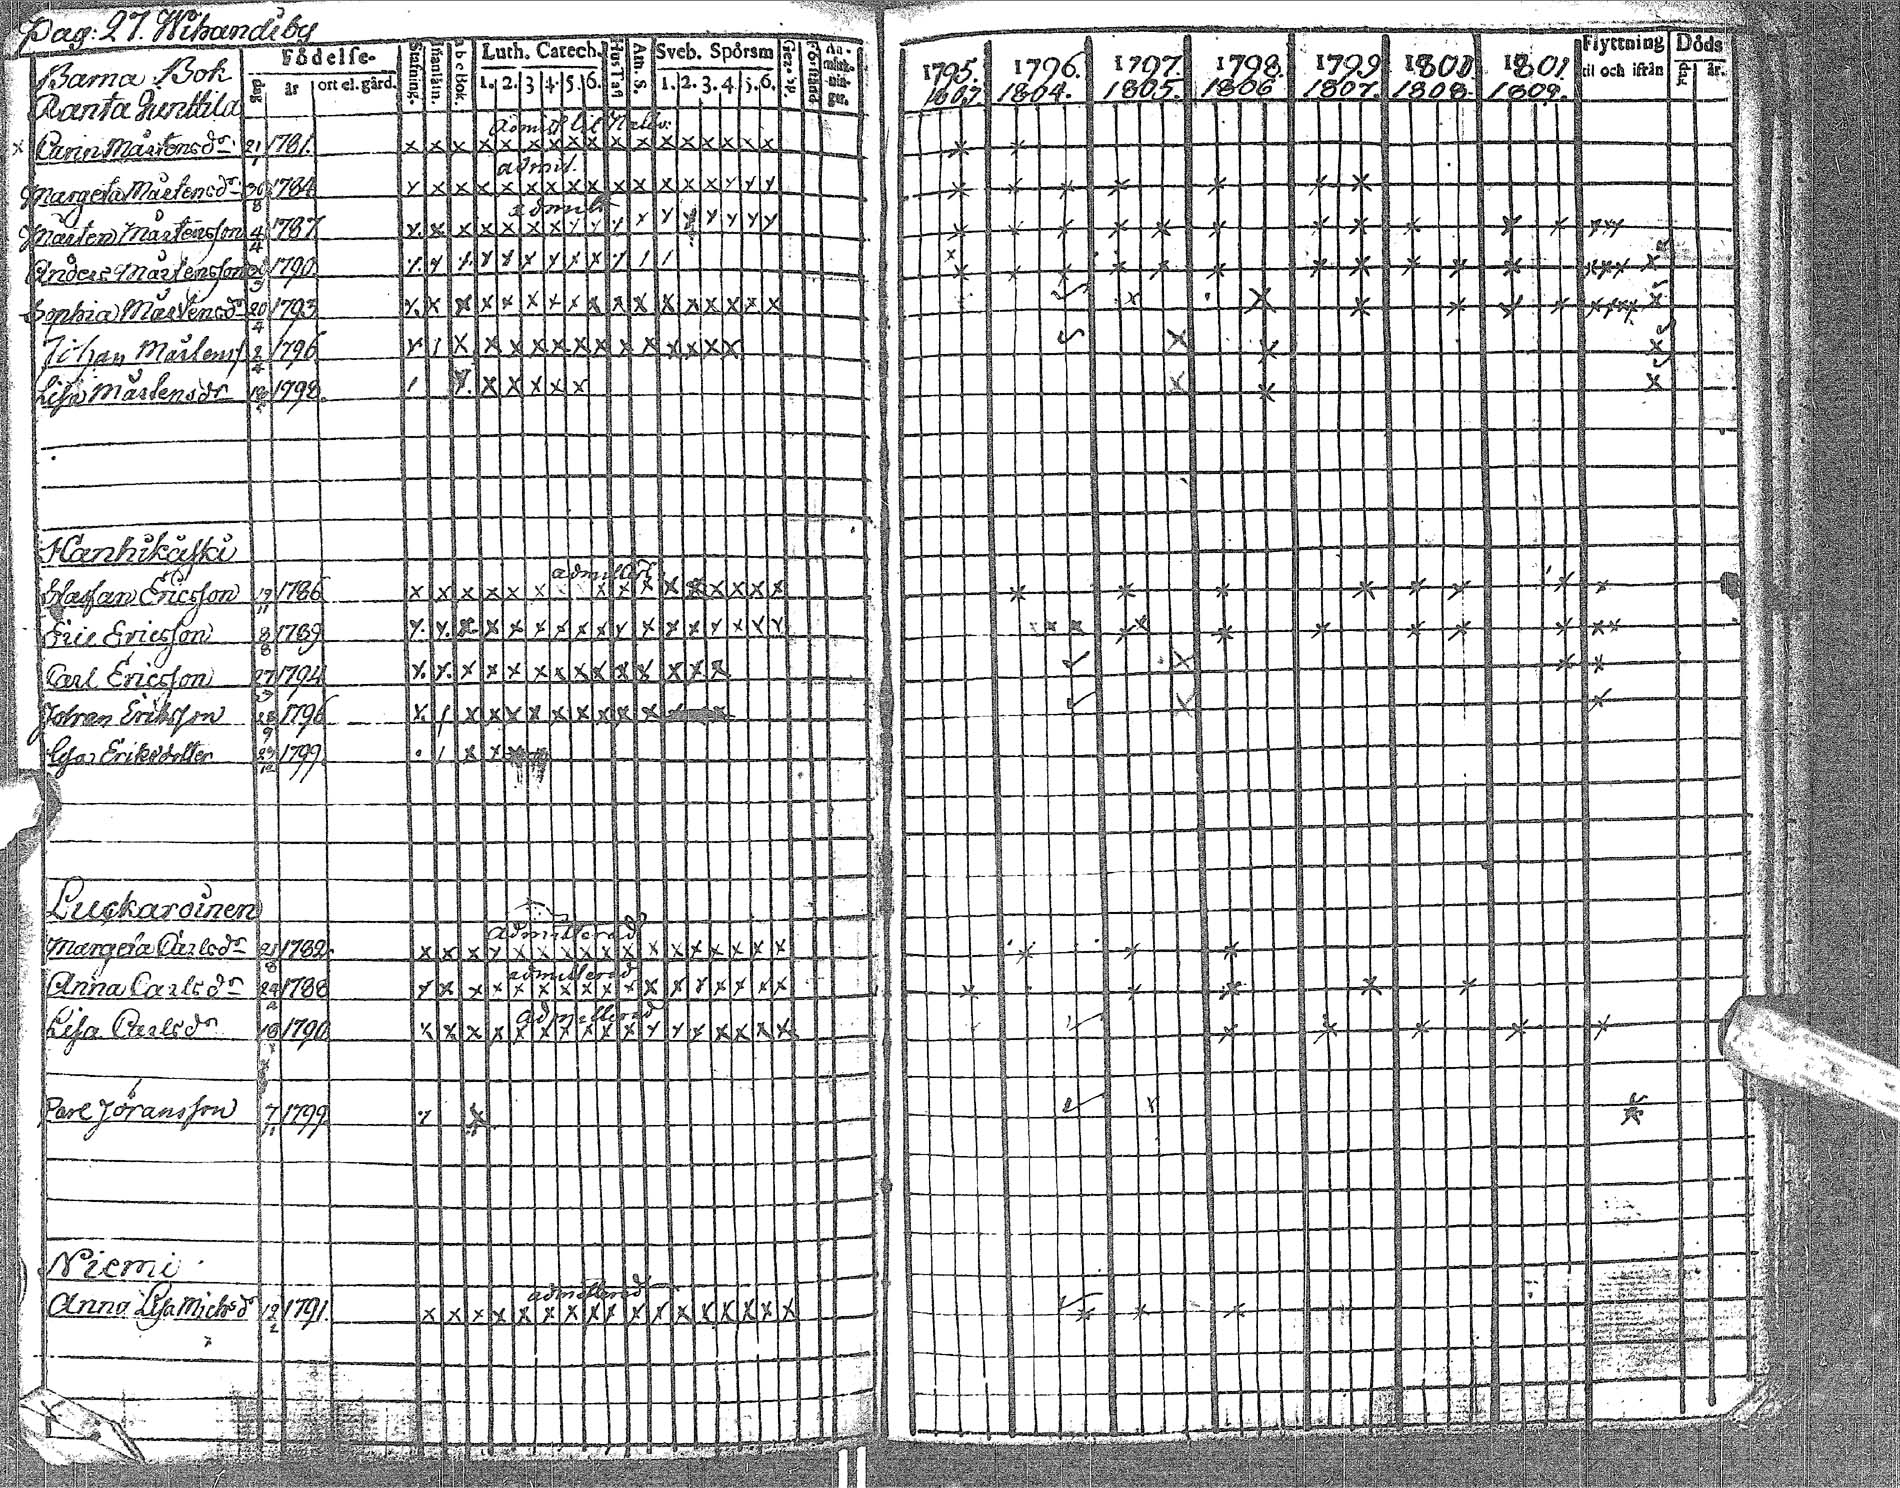 Pag: 27. Wihandiby
Födelse- Stafning. Innanläsn. A b c Bok. Luth. Catech. Hus Tafl. Ath. S. Sveb. Spörsm Gez. Sp. Förstånd An-märk-nin-gar.
dag år ort el. gård. 1. 2. 3 4. 5. 6. 1. 2. 3. 4 5. 6.
1795. 1796. 1797. 1798. 1799 1800. 1801. Flyttning til och ifrån Döds dag. år.
1803. 1804. 1805. 1806 1807. 1808. 1809.
Barna Bok
Ranta Junttila
Carin Mårtensdr 21/1 1781.
admit.
Margeta Mårtensdr 30/8 1784
admitt
Mårten Mårtensson 4/4 1787
Anders Mårtensson 1790
Sophia Mårtensdr 20/4 1793
Johan Mårtenss 2/4 1796
Lisa Mårtensdr 1798.
Hanhikåski
admittert
Staffan Ericsson 19/11 1786
Eric Ericsson 8/8 1789
Carl Ericsson 27 1794
Johan Eriksson 28/9 1796
Lisa Eriksdotter 29/12 1799
Luckaroinen
admitterad
Margeta Carlsdr 21/8 1782.
admitterad
Anna Carlsdr 24/2 1788
admitterad
Lisa Carlsdr 18 1790
Carl Jöransson 7/11 1799
Niemi
admitterad
Anna Lisa Michsdr 12/2 1791.